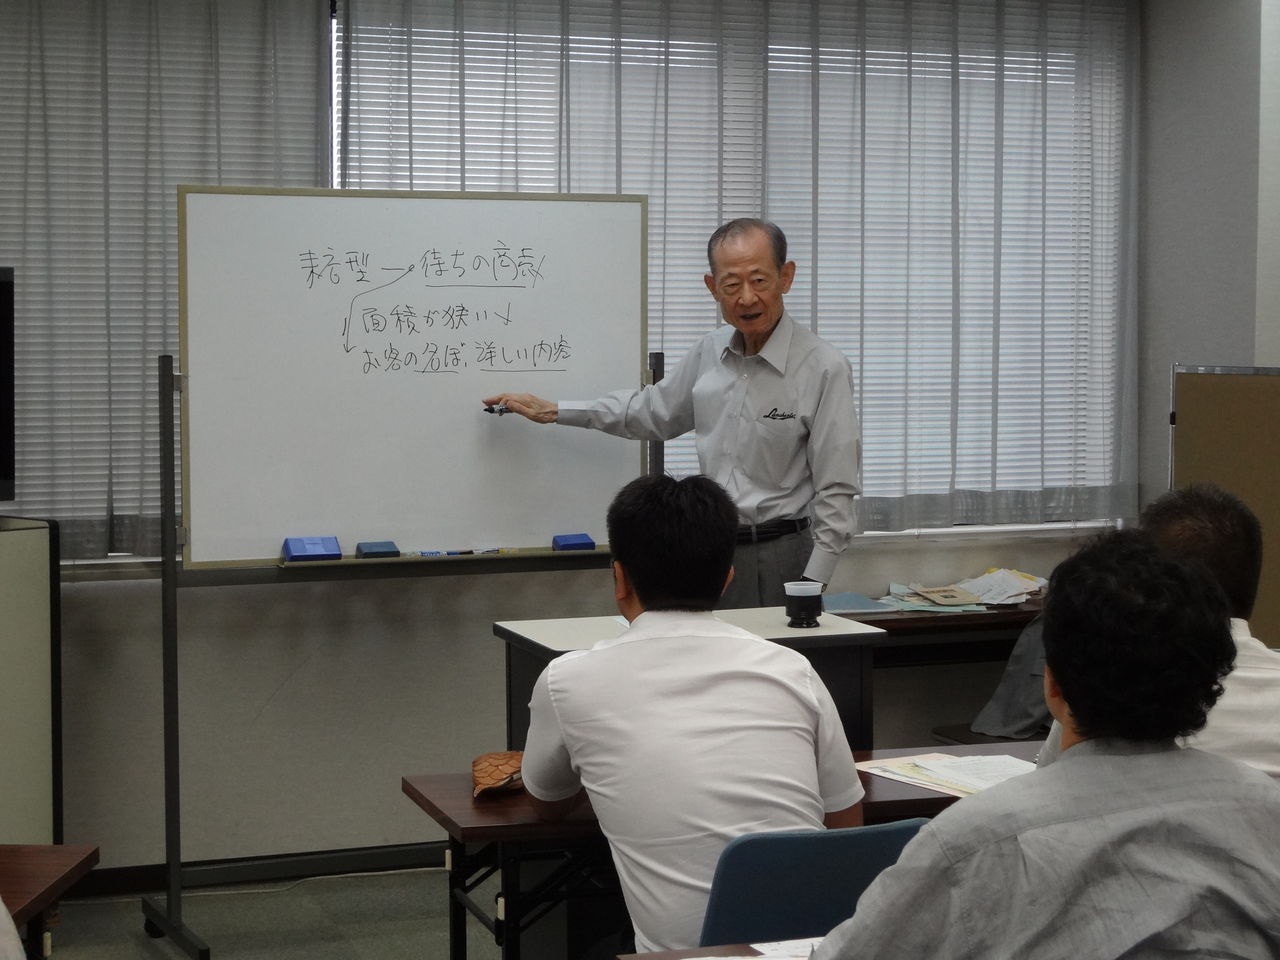 待ちの商売
面積が狭い
お客の名ぼ、詳しい内容